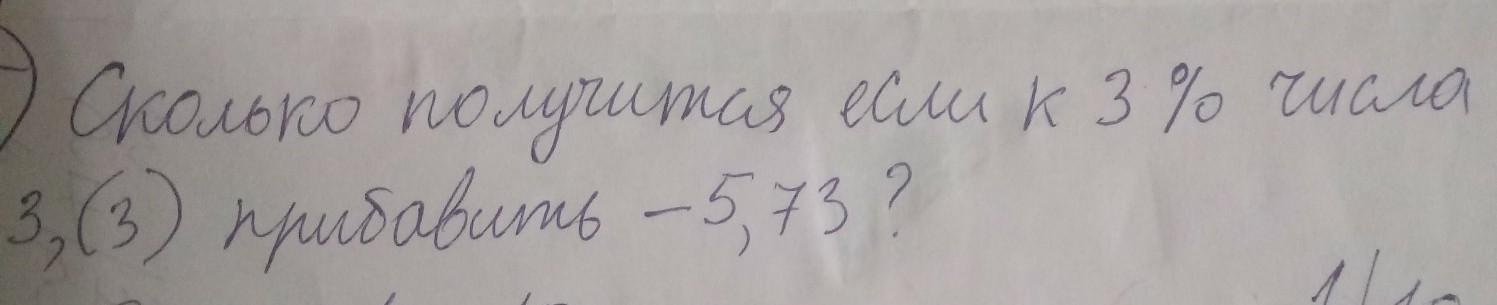 ) Сколько получится если к 3% числа
3,(3) прибавить -5,73?